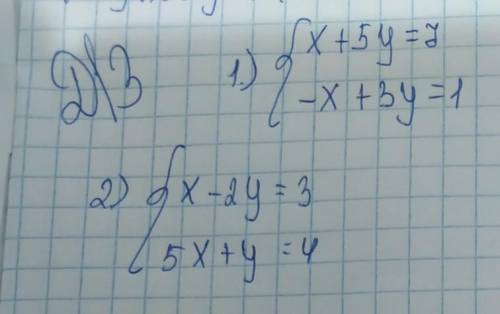 Д\З
1.) { x + 5y = 7
-x + 3y = 1
2) { x - 2y = 3
5x + y = 4